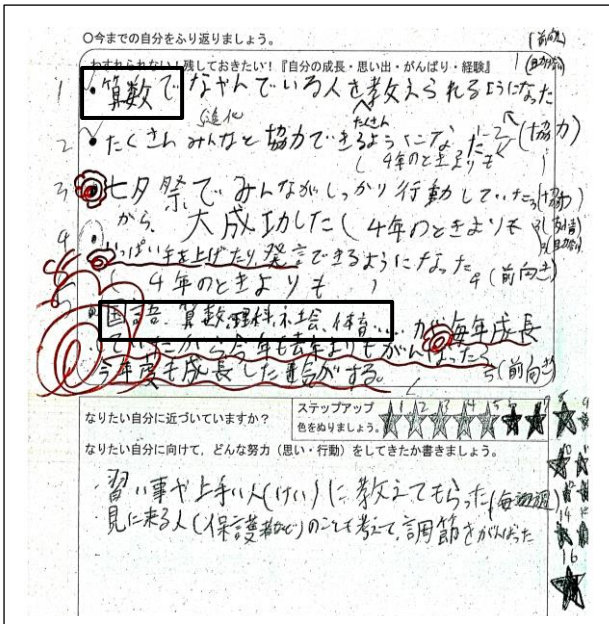 ○今までの自分をふり返りましょう。
わすれられない!残しておきたい!『自分の成長・思い出・がんばり・経験』
1 ・算数でなやんでいる人を教えられるようになった
進化 たくさん
2 ・たくさんみんなと協力できるようになった (協力)
(4年のときよりも)
3 ・七夕祭でみんながしっかり行動していた (協力)
から、大成功した(4年のときよりも
4 ・いっぱい手を上げたり発言できるようになった
(4年のときよりも) 4(前向き)
・国語、算数、理科、社会、体育....が毎年成長
していたから今年も去年よりもがんばったら
今年度も成長した気がする。 5(前向き)
なりたい自分に近づいていますか?
ステップアップ
色をぬりましょう。
なりたい自分に向けて、どんな努力(思い・行動)をしてきたか書きましょう。
・習い事や上手い人(けい)に教えてもらった(毎週)
・見に来る人(保護者など)のことも考えて、調節をがんばった